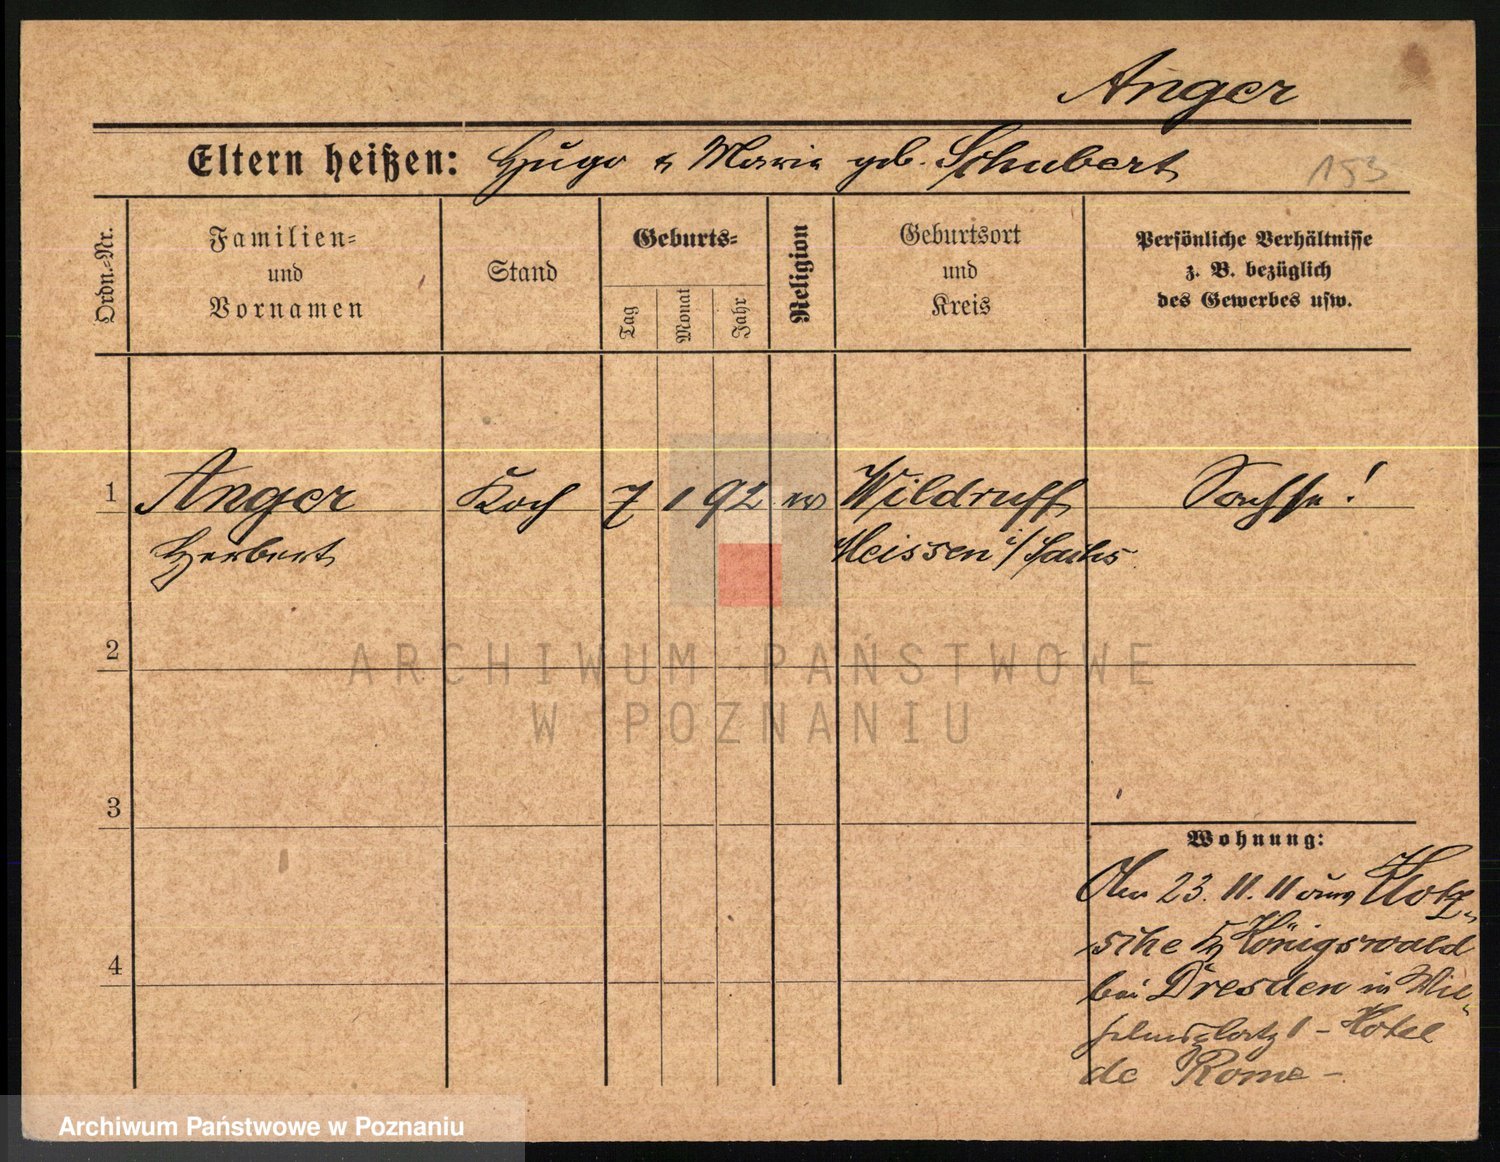 Anger
Eltern heißen: Hugo & Marie geb. Schubert
153
Ordn.-Nr.
Familien-
und
Vornamen
Stand
Geburts-
Tag
Monat
Jahr
Religion
Geburtsort
und
Kreis
Persönliche Verhältnisse
z. B. bezüglich
des Gewerbes usw.
1 Anger Koch 7 1 92 ev Wildruff Sachse!
Herbert Meissen i/Sachs
2
ARCHIWUM PAŃSTWOWE
W POZNANIU
3
Wohnung:
23. 11. 11 aus Klotz-
sche Königswald
4
bei Dresden in Wil-
helmsplatz 1 - Hotel
de Rome -
Archiwum Państwowe w Poznaniu